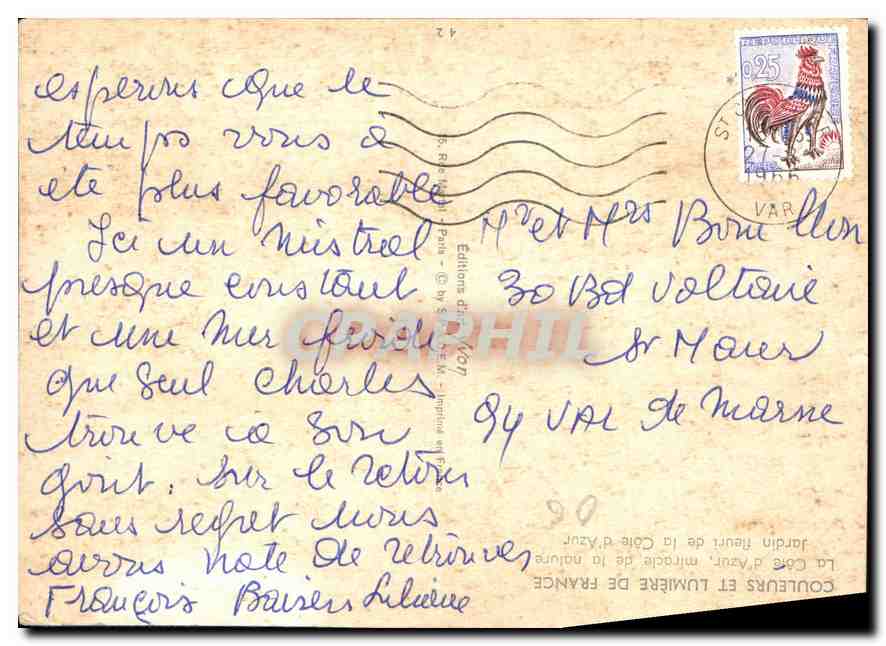 esperons que le
temps vous a
été plus favorable
Ici un mistral
presque constant
et une mer froide
que seul Charles
trouve à son
goût. Sur le retour
sans regret nous
avons hate de retrouver
François Baisers Liliane
Mr et Mrs Bouillon
30 Bd Voltaire
St Maur
94 VAL de Marne
0,25
1966
VAR
42
Éditions d'art Yvon
15, Rue Martel - Paris - © by S.P.A.D.E.M. - Imprimé en France
COULEURS ET LUMIÈRE DE FRANCE
La Côte d'Azur, miracle de la nature
Jardin fleuri de la Côte d'Azur
CPAPHIL